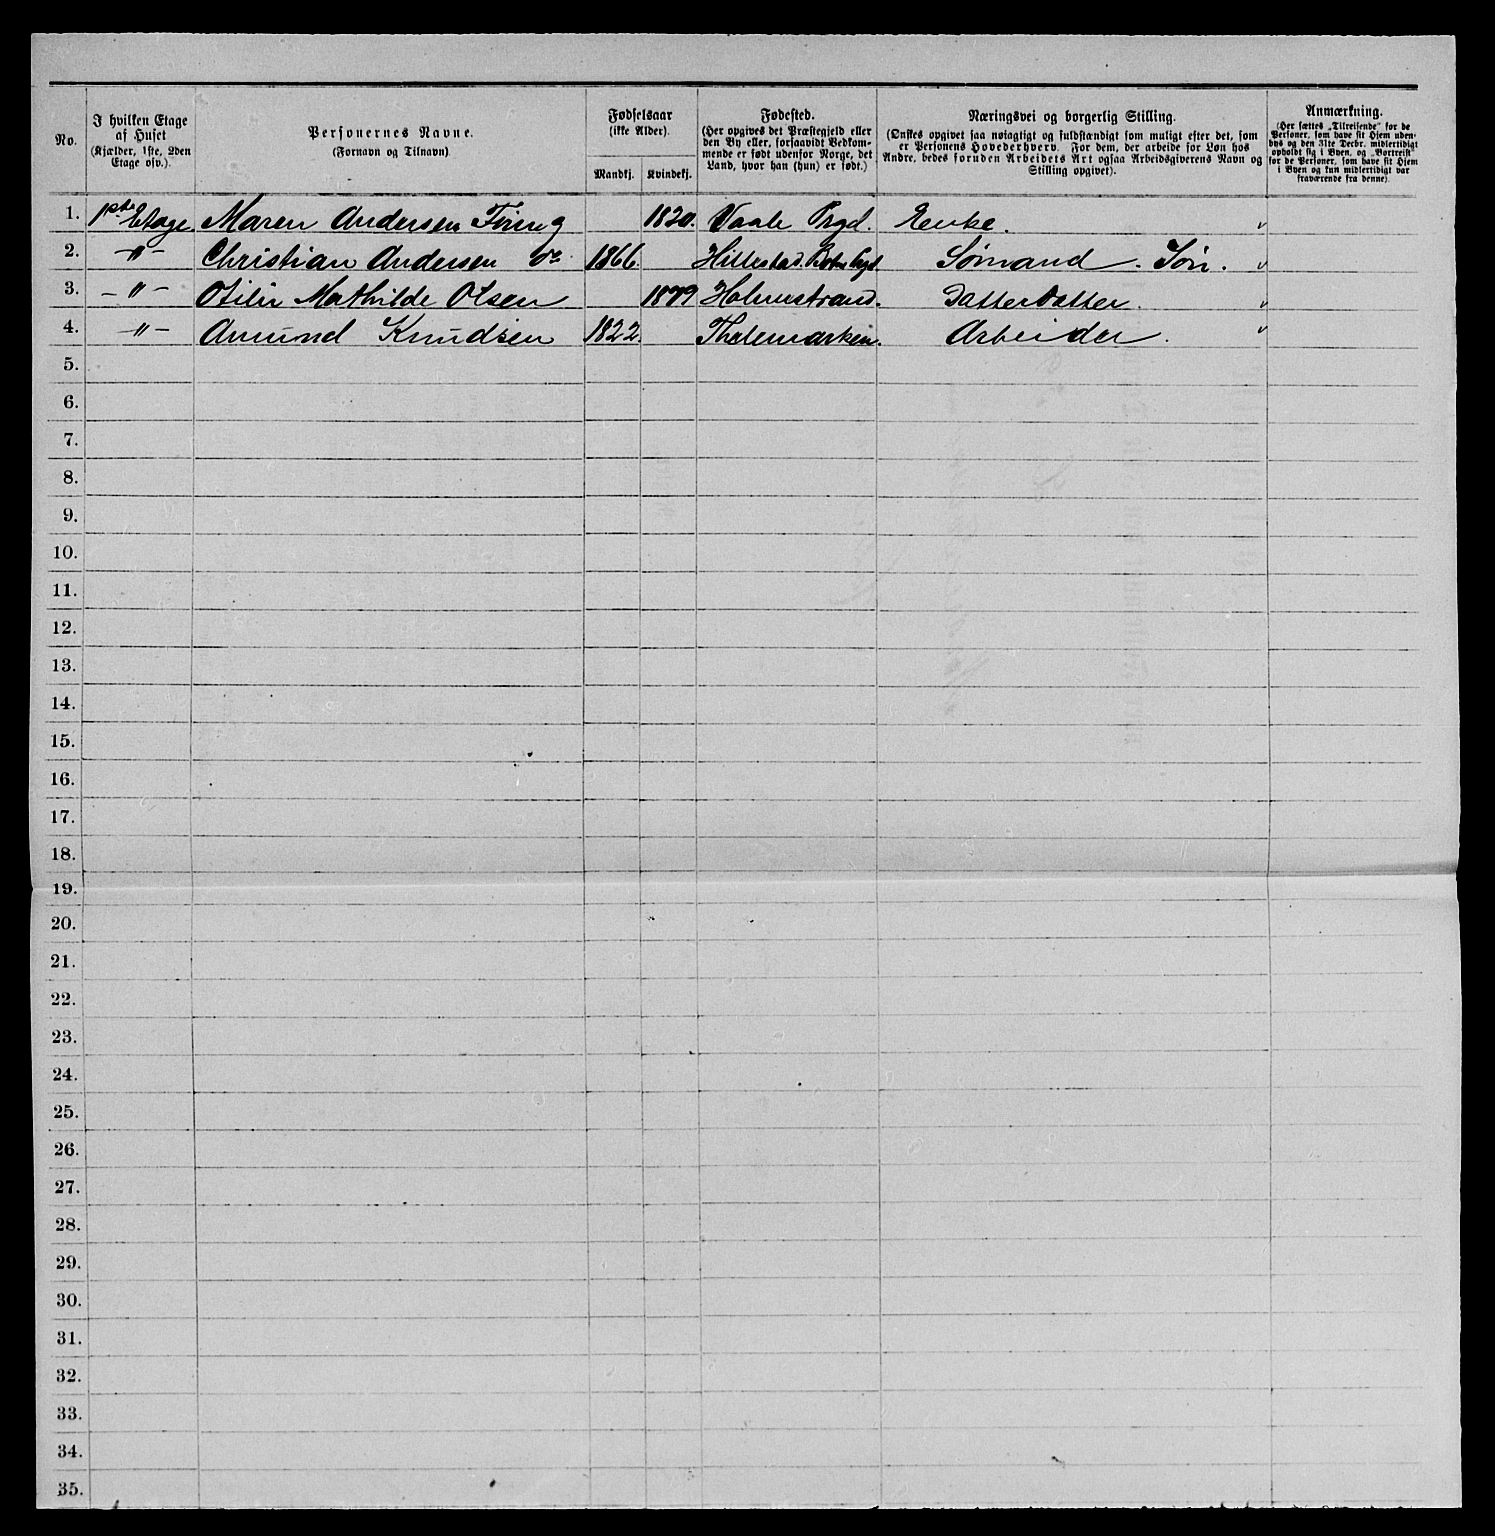 No.
I hvilken Etage af Huset (Kjælder, 1ste, 2den Etage osv.).
Personernes Navne. (Fornavn og Tilnavn)
Fødselsaar (ikke Alder).
Mandkj. Kvindekj.
Fødested. (Her opgives det Præstegjeld eller den By eller, forsaavidt Vedkommende er født udenfor Norge, det Land, hvor han (hun) er født.)
Næringsvei og borgerlig Stilling. (Ønskes opgivet saa nøiagtigt og fuldstændigt som muligt efter det, som er Personens Hovederhverv. For dem, der arbeide for Løn hos Andre, bedes foruden Arbeidets Art ogsaa Arbeidsgiverens Navn og Stilling opgivet).
Anmærkning. (Her sættes „Tilreisende“ for de Personer, som have sit Hjem udenbys og den 31te Decbr. midlertidigt opholdt sig i Byen, og „Bortreist“ for de Personer, som have sit Hjem i Byen og kun midlertidigt var fraværende fra denne).
1. 1ste Etage Maren Andersen 1820. Vaale Prgd. Enke. "
2. -"- Christian Andersen do 1866. Hillestad. Prgd Sømand. Søn. "
3. -"- Otilie Mathilde Olsen 1879 Holmestrand. Datterdatter. "
4. -"- Amund Knudsen 1822. Thelemarken. Arbeider. "
5.
6.
7.
8.
9.
10.
11.
12.
13.
14.
15.
16.
17.
18.
19.
20.
21.
22.
23.
24.
25.
26.
27.
28.
29.
30.
31.
32.
33.
34.
35.